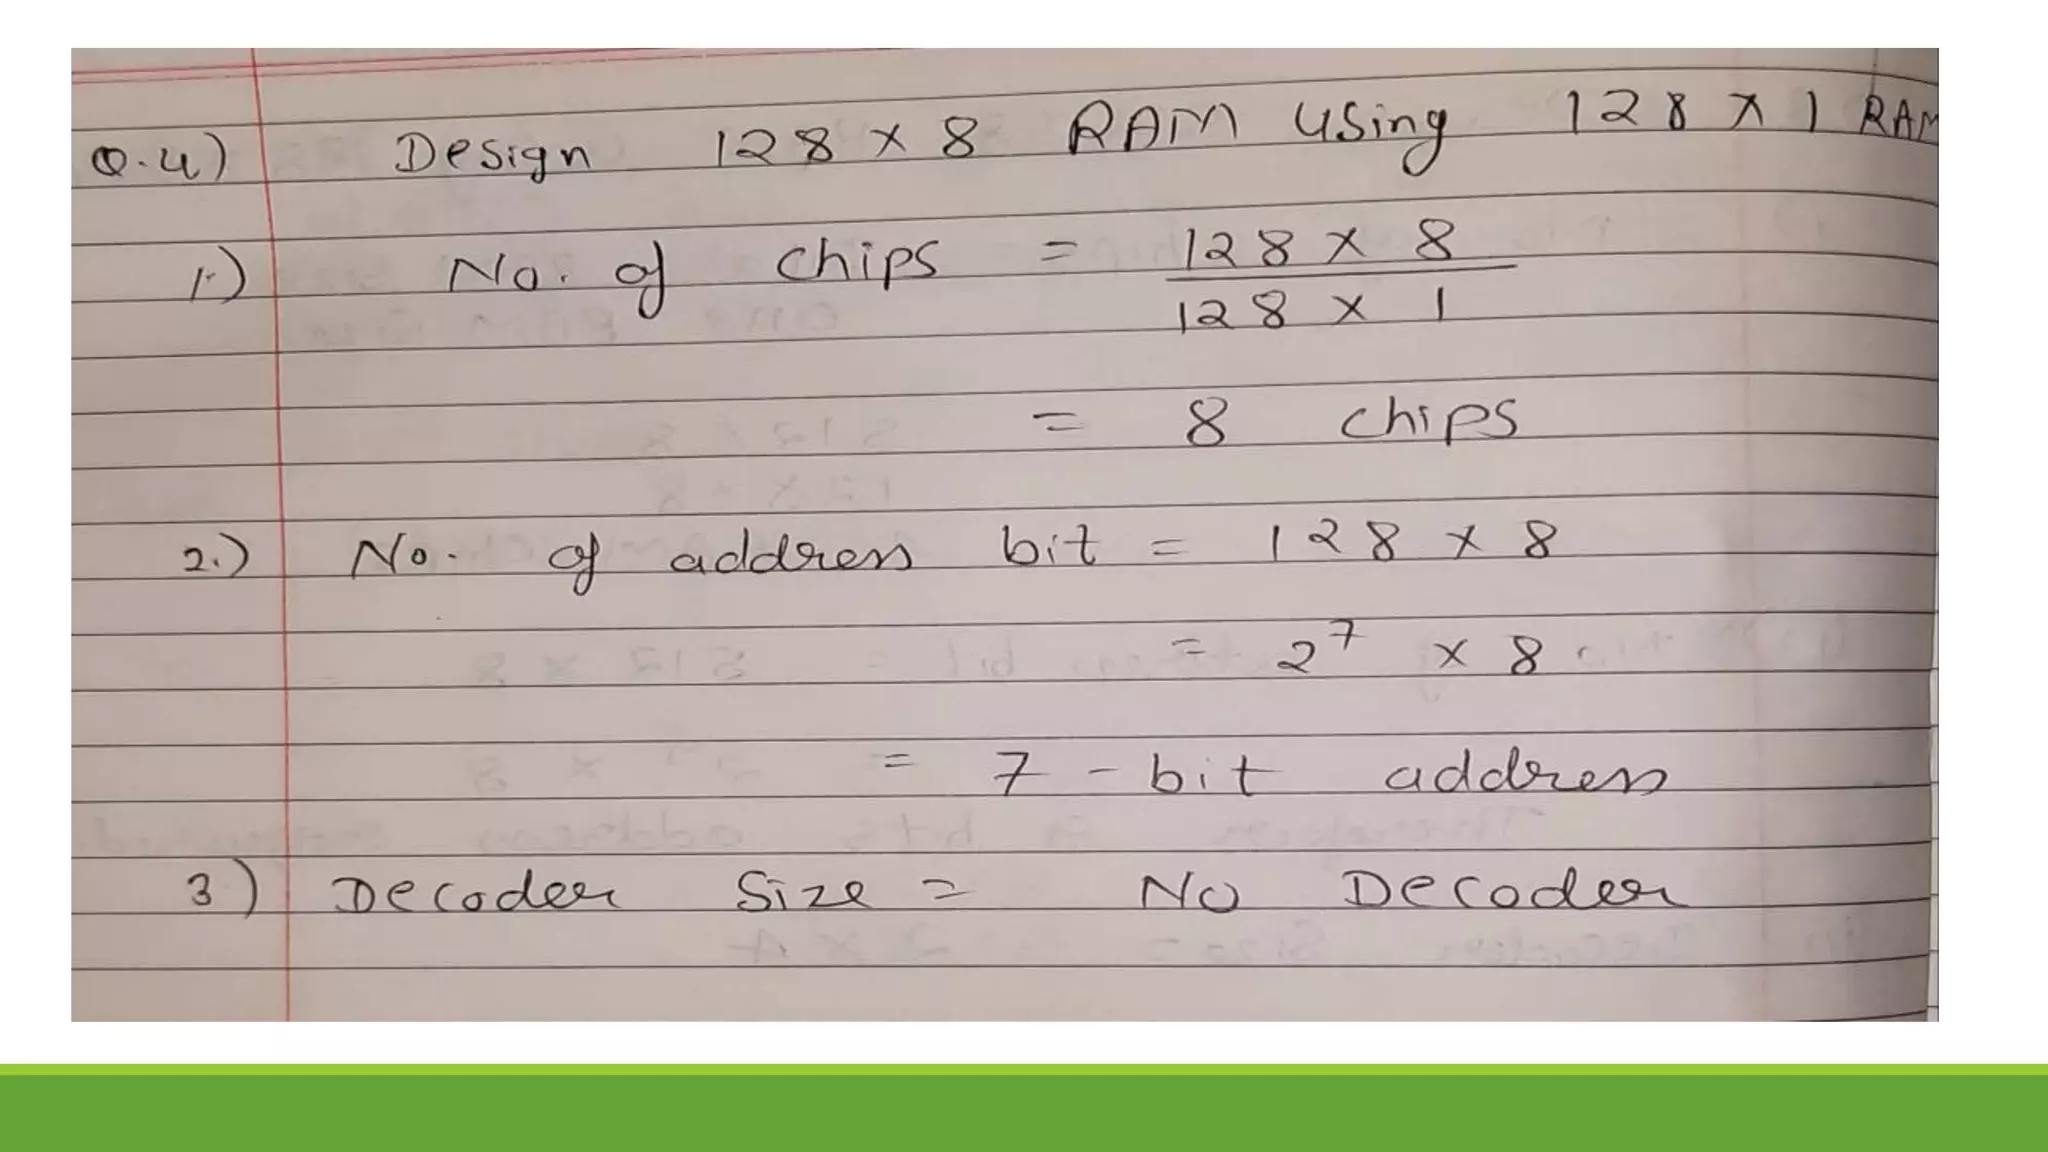 Q.4) Design 128 × 8 RAM Using 128 × 1 RAM
1.) No. of chips = 128 × 8
128 × 1
= 8 chips
2.) No. of address bit = 128 × 8
= 2⁷ × 8
= 7 - bit address
3) Decoder Size = No Decoder